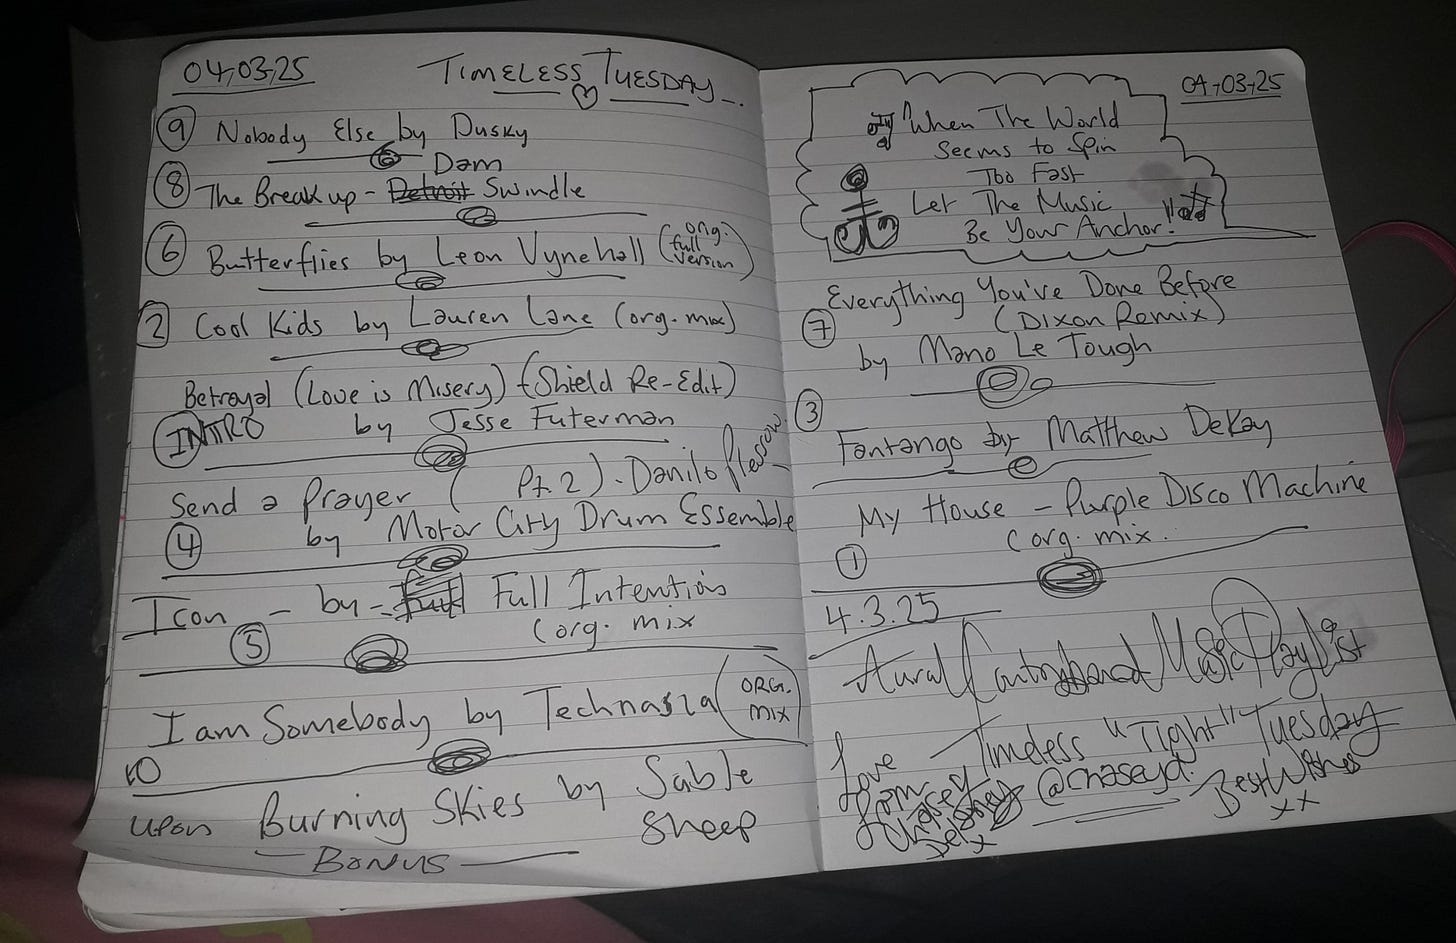 04,03,25
TIMELESS TUESDAY
9 Nobody Else by Dusky
Dam
8 The Break up - Detroit Swindle
6 Butterflies by Leon Vynehall (org. full version)
2 Cool Kids by Lauren Lane (org. mix)
Betrayal (Love is Misery) (Shield Re-Edit)
INTRO by Jesse Futerman
Send a Prayer (Pt. 2). Danilo Plessow
4 by Motor City Drum Essemble
Icon - by - Full Intention
5 (org. mix
I am Somebody by Technasia (ORG. MIX)
10
upon Burning Skies by Sable
Sheep
BONUS
04-03-25
"When The World
Seems to Spin
Too Fast
Let The Music
Be Your Anchor!"
Everything You've Done Before
7 (Dixon Remix)
by Mano Le Tough
3
Fantango by Matthew DeKay
My House - Purple Disco Machine
1 (org. mix.
4.3.25
Aural Music Playlist
Love - Timeless "Tight" Tuesday
from Chasey
@chaseyd.
Best Wishes
xx